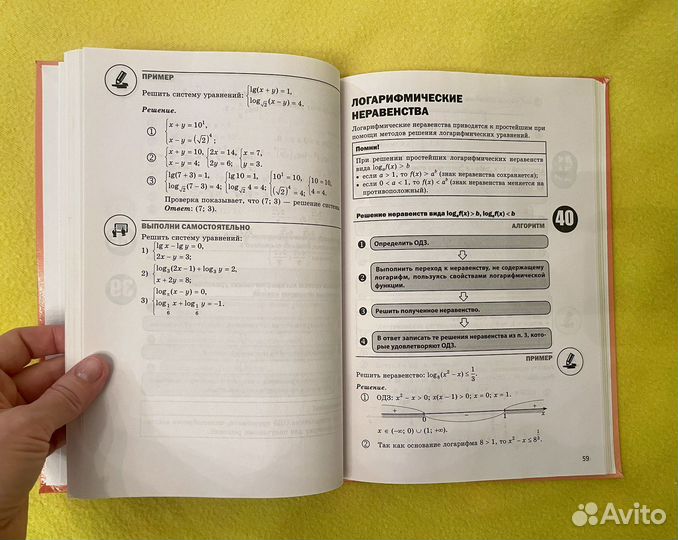 ПРИМЕР
Решить систему уравнений: {lg(x + y) = 1,
log_√2(x − y) = 4.
Решение.
① {x + y = 10¹,
x − y = (√2)⁴;
② {x + y = 10, {2x = 14, {x = 7,
x − y = 4; 2y = 6; y = 3.
③ {lg(7 + 3) = 1, {lg 10 = 1, {10¹ = 10, {10 = 10,
log_√2(7 − 3) = 4; log_√2 4 = 4; (√2)⁴ = 4; 4 = 4.
Проверка показывает, что (7; 3) — решение системы
Ответ: (7; 3).
ВЫПОЛНИ САМОСТОЯТЕЛЬНО
Решить систему уравнений:
1) {lg x − lg y = 0,
2x − y = 3;
2) {log₃(2x − 1) + log₃ y = 2,
x + 2y = 8;
3) (x − y) = 0,
log_1/6 x + log_1/6 y = −1.
ЛОГАРИФМИЧЕСКИЕ
НЕРАВЕНСТВА
Логарифмические неравенства приводятся к простейшим при
помощи методов решения логарифмических уравнений.
Помни!
При решении простейших логарифмических неравенств
вида logₐf(x) > b
• если a > 1, то f(x) > aᵇ (знак неравенства сохраняется);
• если 0 < a < 1, то f(x) < aᵇ (знак неравенства меняется на
противоположный).
Решение неравенств вида logₐf(x) > b, logₐf(x) < b
40
АЛГОРИТМ
1 Определить ОДЗ.
2 Выполнить переход к неравенству, не содержащему
логарифм, пользуясь свойствами логарифмической
функции.
3 Решить полученное неравенство.
4 В ответ записать те решения неравенства из п. 3, кото-
рые удовлетворяют ОДЗ.
ПРИМЕР
Решить неравенство: log₈(x² − x) ≤ 1/3.
Решение.
① ОДЗ: x² − x > 0; x(x − 1) > 0; x = 0; x = 1.
+ 0 − 1 + x
x ∈ (−∞; 0) ∪ (1; +∞).
② Так как основание логарифма 8 > 1, то x² − x ≤ 8^(1/3).
59
Avito